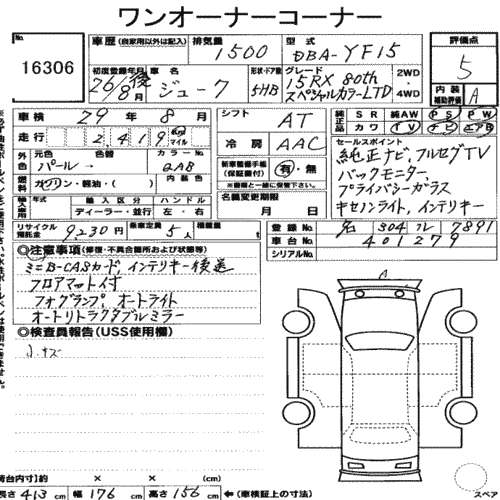 ワンオーナーコーナー
No.
16306
車歴 (自家用以外は記入)
排気量
1500
型式
DBA-YF15
評価点
5
初度登録年月
26年
8月
後
車名
ジューク
形状・ドア数
5HB
グレード
15RX 80th
スペシャルカラーLTD
2WD
4WD
内装
補助評価
A
車検 29年 8月
シフト
AT
純正品
SR 純AW PS PW
カワ TV ナビ エアB
走行
2,419
km
マイル
冷房
AAC
セールスポイント
純正ナビ,フルセグTV
バックモニター,
プライバシーガラス
キセノンライト, インテリキー
外色
元色
パール
色替
カラーNo.
QAB
新車整備手帳
(保証書付)
有・無
燃料
ガソリン・軽油・( )
内装色
名義変更期限
月 日
輸入車
年式
輸入区分
ディーラー・並行
ハンドル
左・右
リサイクル
預託金
9,230円
乗車定員
5人
積載量
t
登録No.
304 7891
車台No.
401279
シリアルNo.
◎注意事項 (修復・不具合箇所および状態等)
ミニB-CASカード, インテリキー後送
フロアマット付
フォグランプ, オートライト
オートリトラクタブルミラー
◎検査員報告(USS使用欄)
小キズ
A
荷台内寸) × × (cm)
長さ 413cm 幅 176cm 高さ 156cm ←(車検証上の寸法)
スペア